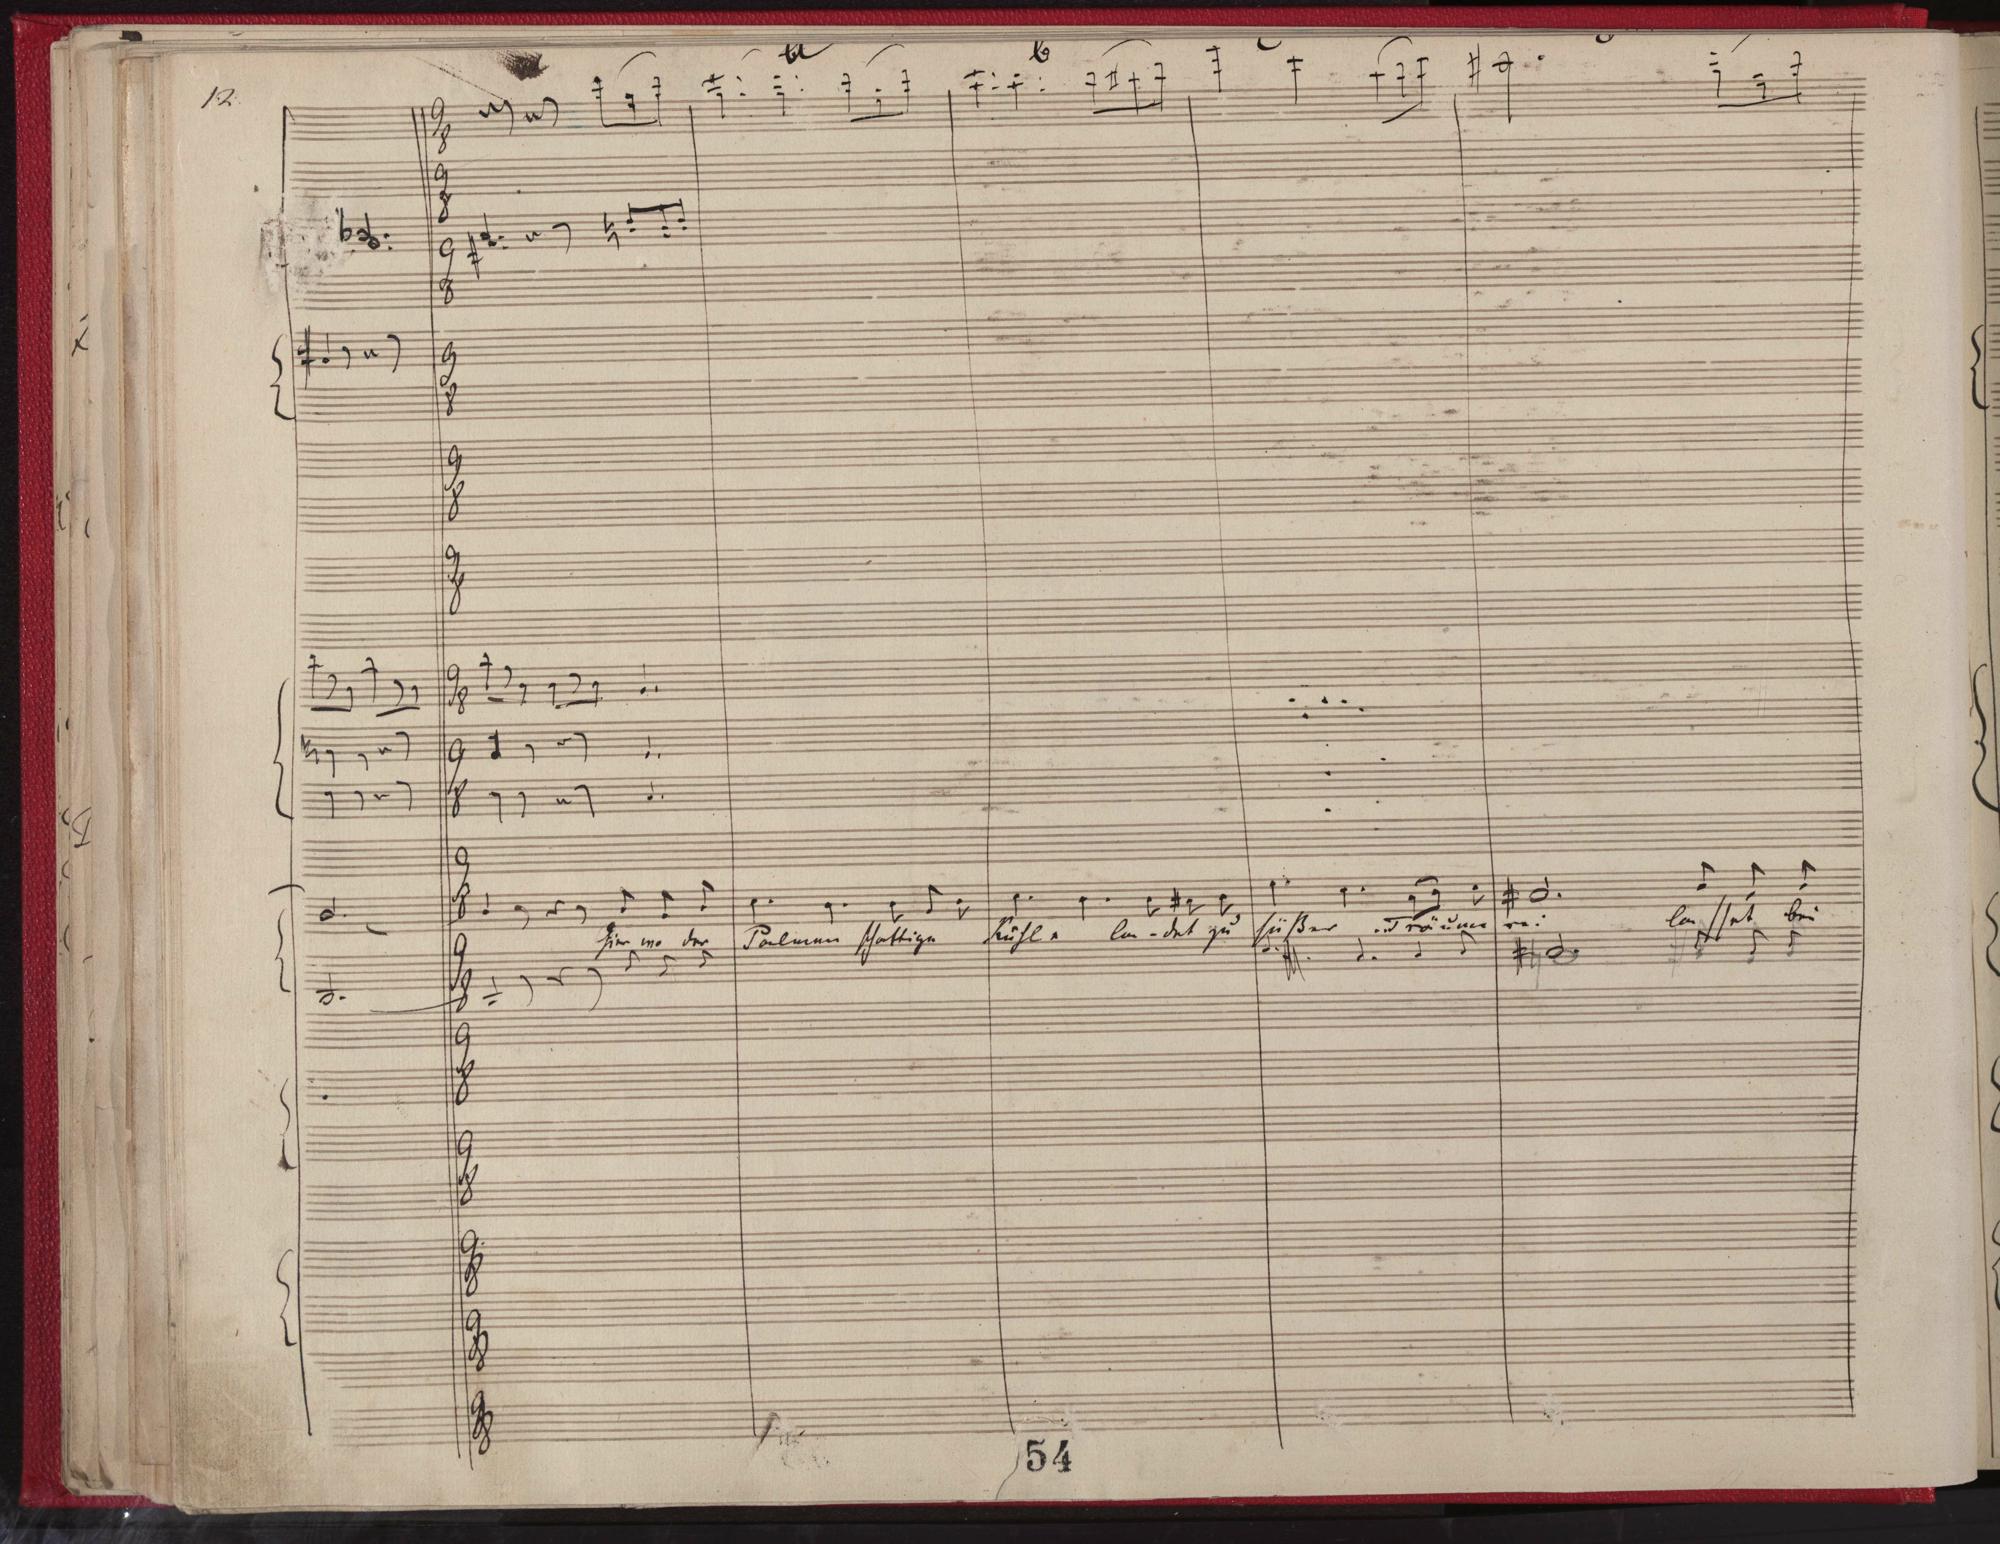 12.
9 8
Hier wo der Palmen schattige Kühle la-det zu süßer Träume rei: la sset bei
54